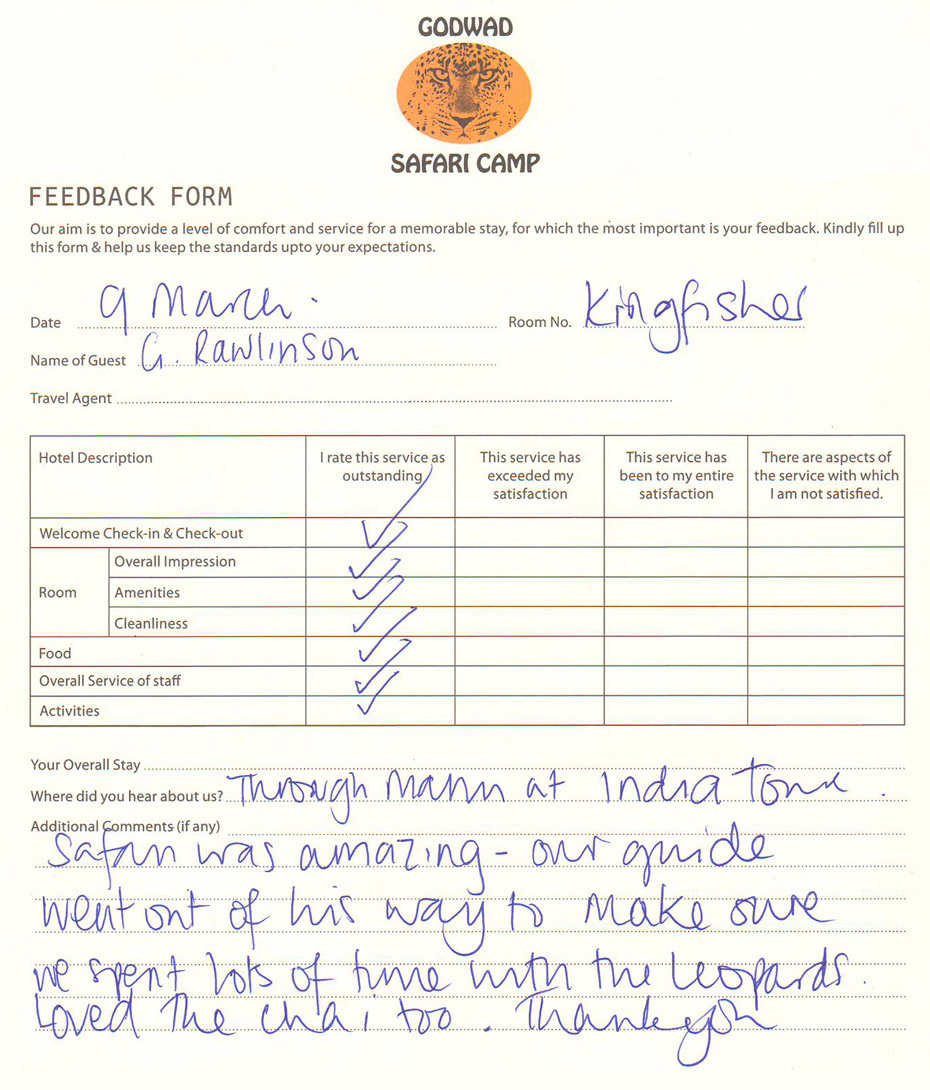 GODWAD
SAFARI CAMP
FEEDBACK FORM
Our aim is to provide a level of comfort and service for a memorable stay, for which the most important is your feedback. Kindly fill up
this form & help us keep the standards upto your expectations.
Date 9 March. Room No. Kingfisher
Name of Guest G. Rawlinson
Travel Agent
Hotel Description
I rate this service as
outstanding
This service has
exceeded my
satisfaction
This service has
been to my entire
satisfaction
There are aspects of
the service with which
I am not satisfied.
Welcome Check-in & Check-out ✓
Room
Overall Impression ✓
Amenities ✓
Cleanliness ✓
Food ✓
Overall Service of staff ✓
Activities ✓
Your Overall Stay
Where did you hear about us? Through at India .
Additional Comments (if any)
Safari was amazing - our guide
went out of his way to make sure
we spent lots of time with the leopards.
Loved the chai too. Thankyou